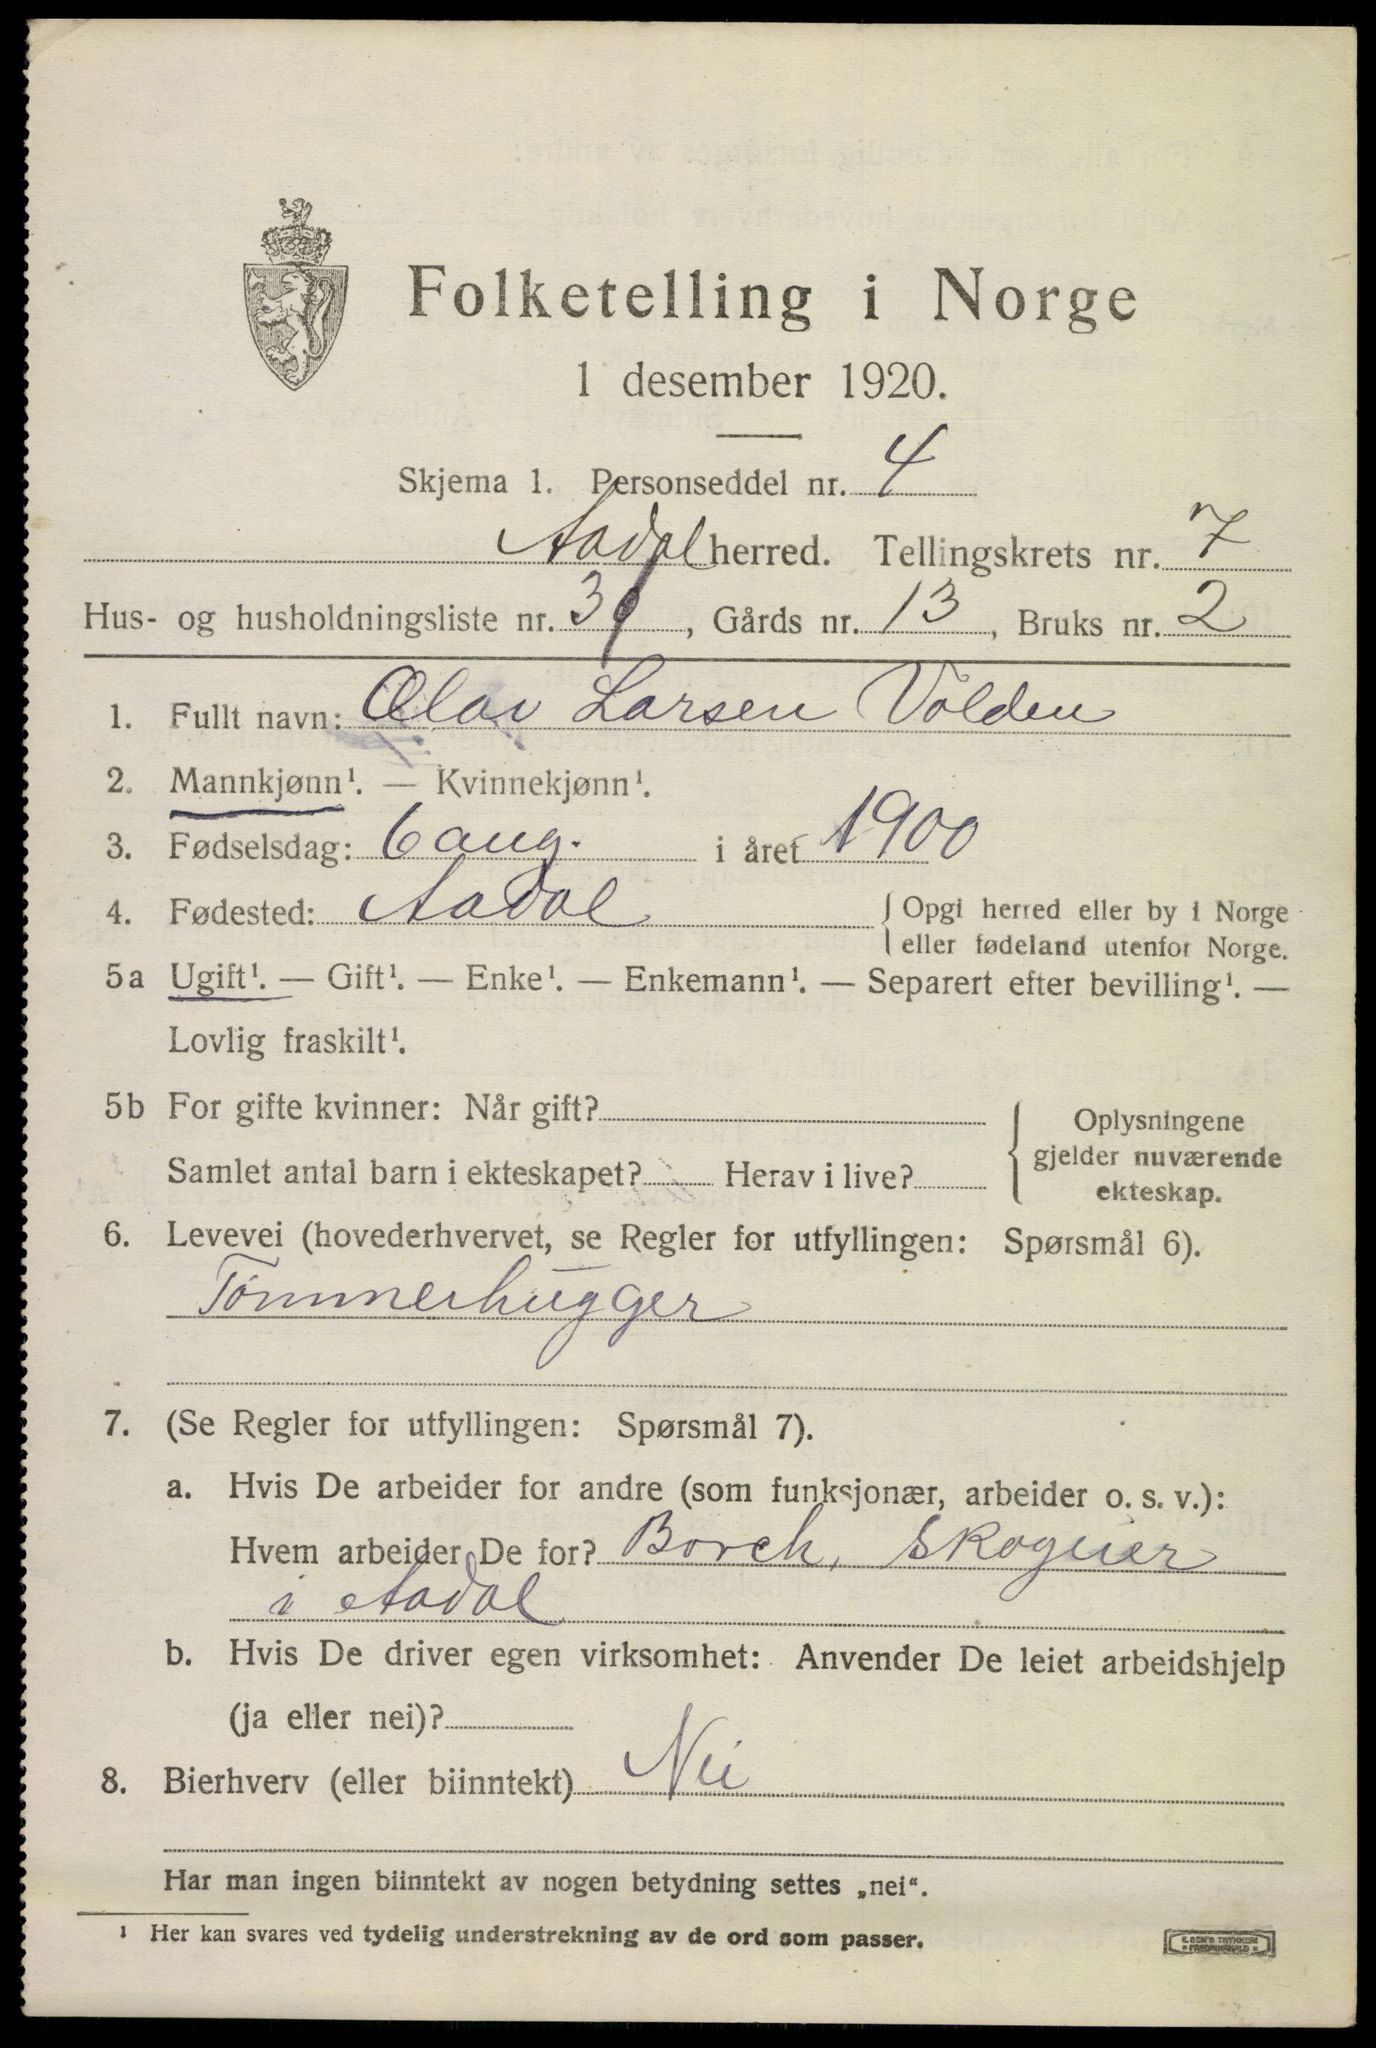 Folketelling i Norge
1 desember 1920.
Skjema 1. Personseddel nr. 4
Aadal herred. Tellingskrets nr. 7
Hus- og husholdningsliste nr. 39, Gårds nr. 13, Bruks nr. 2
1. Fullt navn: Olav Larsen Volden
2. Mannkjønn¹. — Kvinnekjønn¹.
3. Fødselsdag: 6 aug. i året 1900
4. Fødested: Aadal { Opgi herred eller by i Norge
eller fødeland utenfor Norge.
5a Ugift¹. — Gift¹. — Enke¹. — Enkemann¹. — Separert efter bevilling¹. —
Lovlig fraskilt¹.
5b For gifte kvinner: Når gift?
Samlet antal barn i ekteskapet? Herav i live?
Oplysningene
gjelder nuværende
ekteskap.
6. Levevei (hovederhvervet, se Regler for utfyllingen: Spørsmål 6).
Tømmerhugger
7. (Se Regler for utfyllingen: Spørsmål 7).
a. Hvis De arbeider for andre (som funksjonær, arbeider o. s. v.):
Hvem arbeider De for? Borch, Skogeier
i Aadal
b. Hvis De driver egen virksomhet: Anvender De leiet arbeidshjelp
(ja eller nei)?
8. Bierhverv (eller biinntekt) Nei
Har man ingen biinntekt av nogen betydning settes „nei“.
¹ Her kan svares ved tydelig understrekning av de ord som passer.